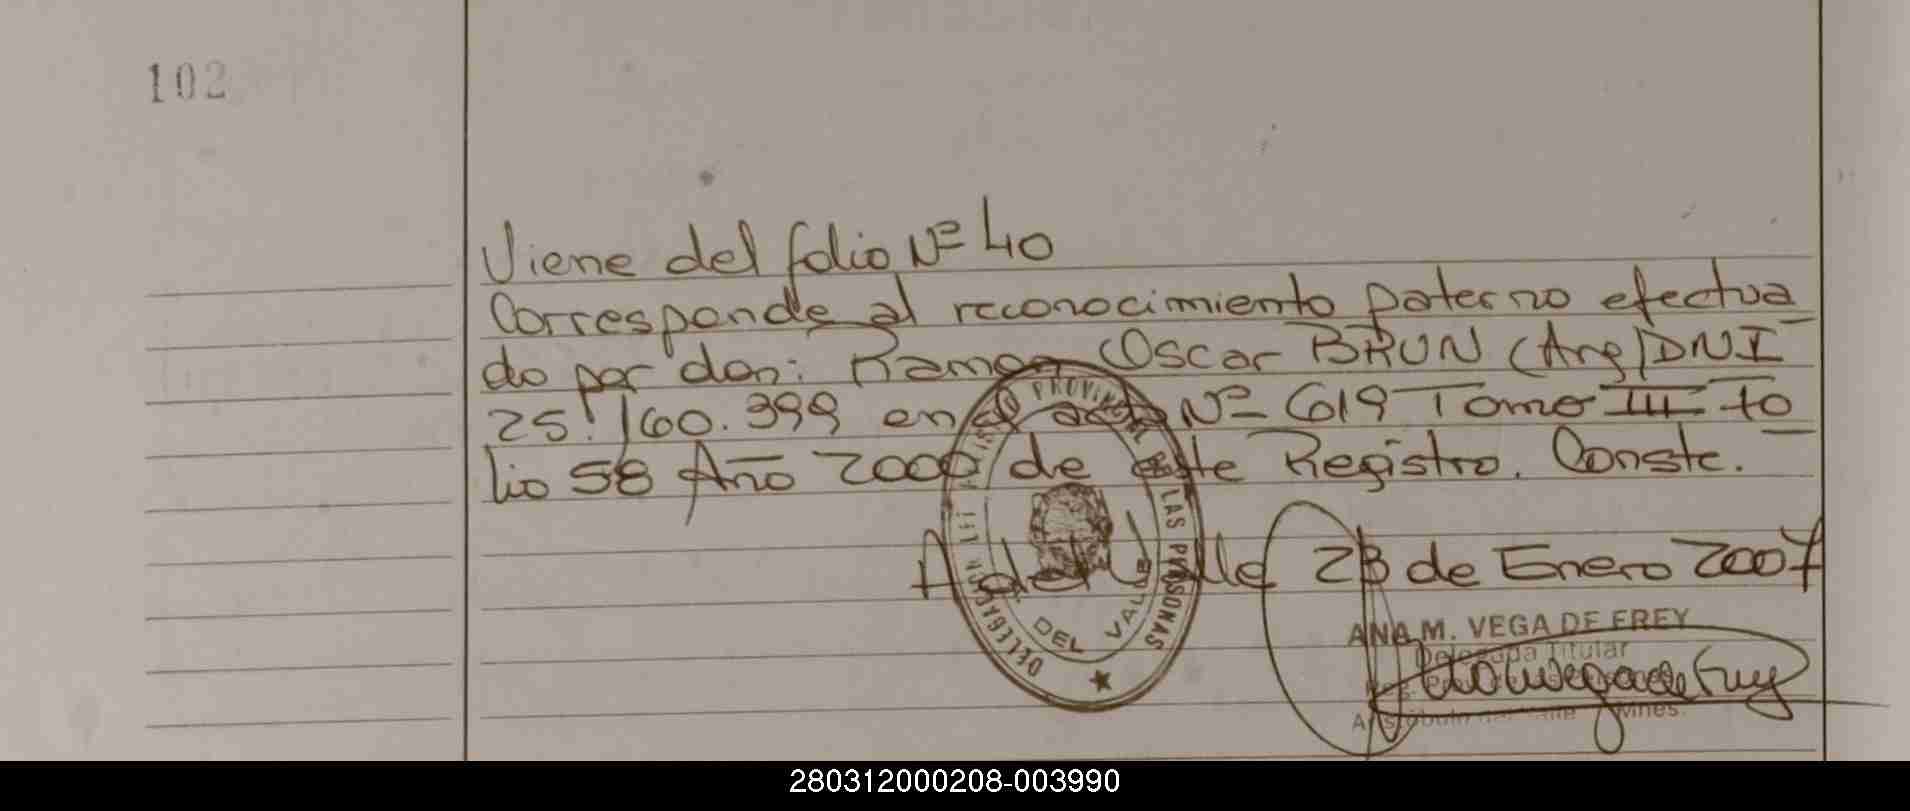 102
Viene del folio Nº 40
Corresponde al reconocimiento paterno efectua
do por don: Ramon Oscar BRUN (Arg) DNI
25.160.399 en el acta Nº 619 Tomo III Fo
lio 58 Año 2000 de este Registro. Conste.
A del Valle 23 de Enero 2007
PROVINCIAL DE LAS PERSONAS
DEL VALLE
ANA M. VEGA DE FREY
Delegada Titular
Aristóbulo del Valle Mnes.
280312000208-003990